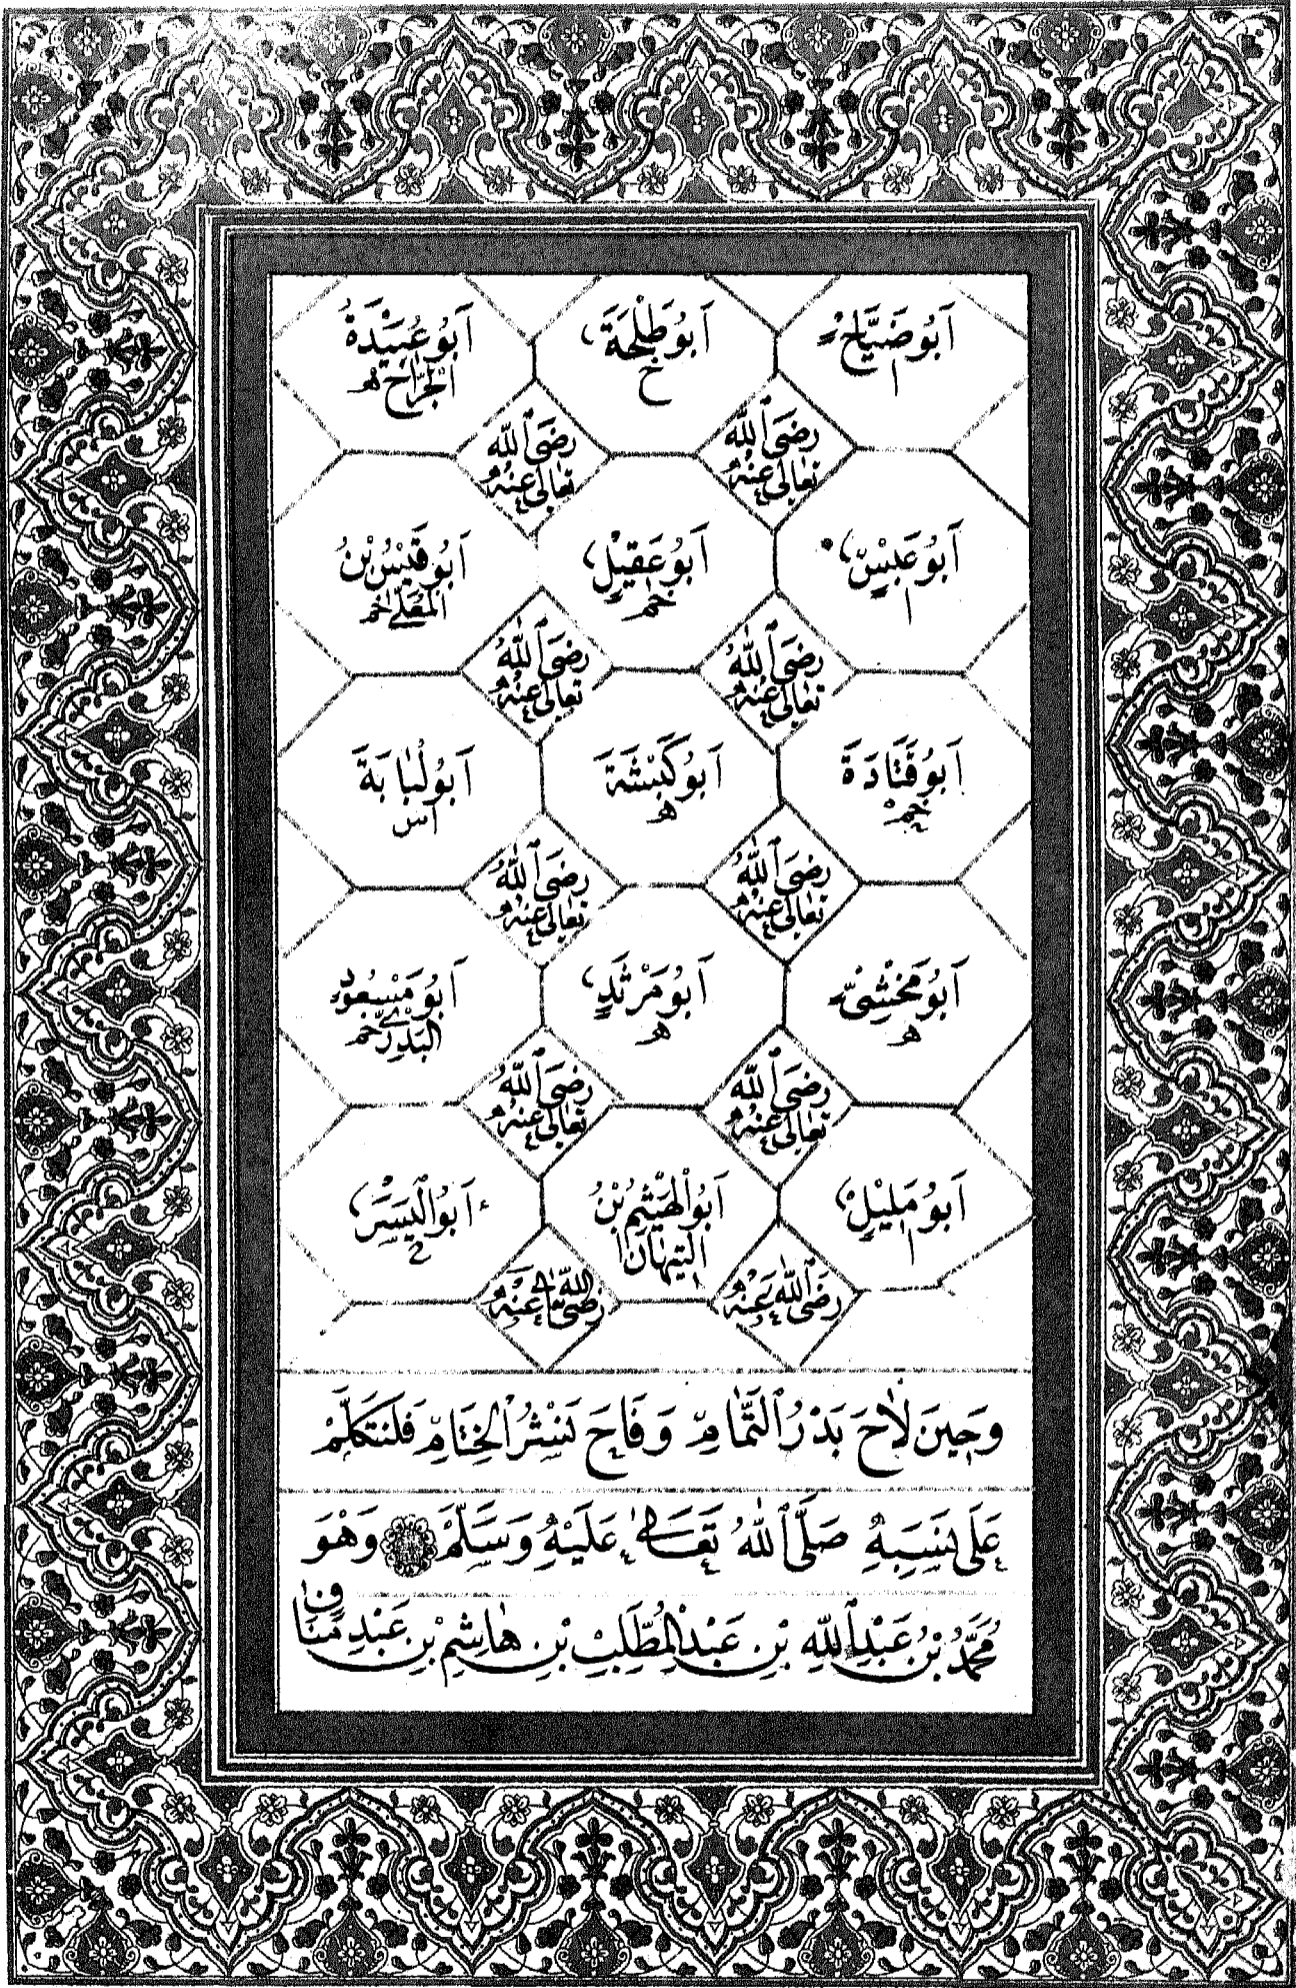 اَبُو ضَيَّاحٍ
ا
اَبُو طَلْحَةَ
خ
اَبُو عُبَيْدَةَ
الْجَرَّاحِ هـ
رَضِىَ ٱللّٰهُ
تَعَالٰى عَنْهُ
رَضِىَ ٱللّٰهُ
تَعَالٰى عَنْهُ
اَبُو عَبْسٍ
ا
اَبُو عَقِيْلٍ
خم
اَبُو قَيْسُ بْنُ
الْمُعَلّٰى خم
رَضِىَ ٱللّٰهُ
تَعَالٰى عَنْهُ
رَضِىَ ٱللّٰهُ
تَعَالٰى عَنْهُ
اَبُو قَتَادَةَ
اَبُو كَبْشَةَ
هـ
اَبُو لُبَابَةَ
اس
رَضِىَ ٱللّٰهُ
تَعَالٰى عَنْهُ
رَضِىَ ٱللّٰهُ
تَعَالٰى عَنْهُ
اَبُو مَخْشِىٍّ
هـ
اَبُو مَرْثَدٍ
هـ
اَبُو مَسْعُودٍ
الْبَدْرِىُّ خم
رَضِىَ ٱللّٰهُ
تَعَالٰى عَنْهُ
رَضِىَ ٱللّٰهُ
تَعَالٰى عَنْهُ
اَبُو مَلِيْلٍ
ا
اَبُو الْهَيْثَمِ بْنُ
التَّيِّهَانِ ا
اَبُو الْيَسَرِ
خ
رَضِىَ ٱللّٰهُ عَنْهُ
رَضِىَ اللّٰهُ عَنْهُ
وَحِينَ لَاحَ بَدْرُ ٱلتَّمَامِ وَفَاحَ نَشْرُ الْخِتَامِ فَلْنَتَكَلَّمْ
عَلَى نَسَبِهِ صَلَّى ٱللّٰهُ تَعَالٰى عَلَيْهِ وَسَلَّمْ وَهْوَ
مُحَمَّدُ بْنُ عَبْدِ ٱللّٰهِ بْنِ عَبْدِ الْمُطَّلِبْ بْنِ هَاشِمْ بْنِ عَبْدِ مَنَافٍ